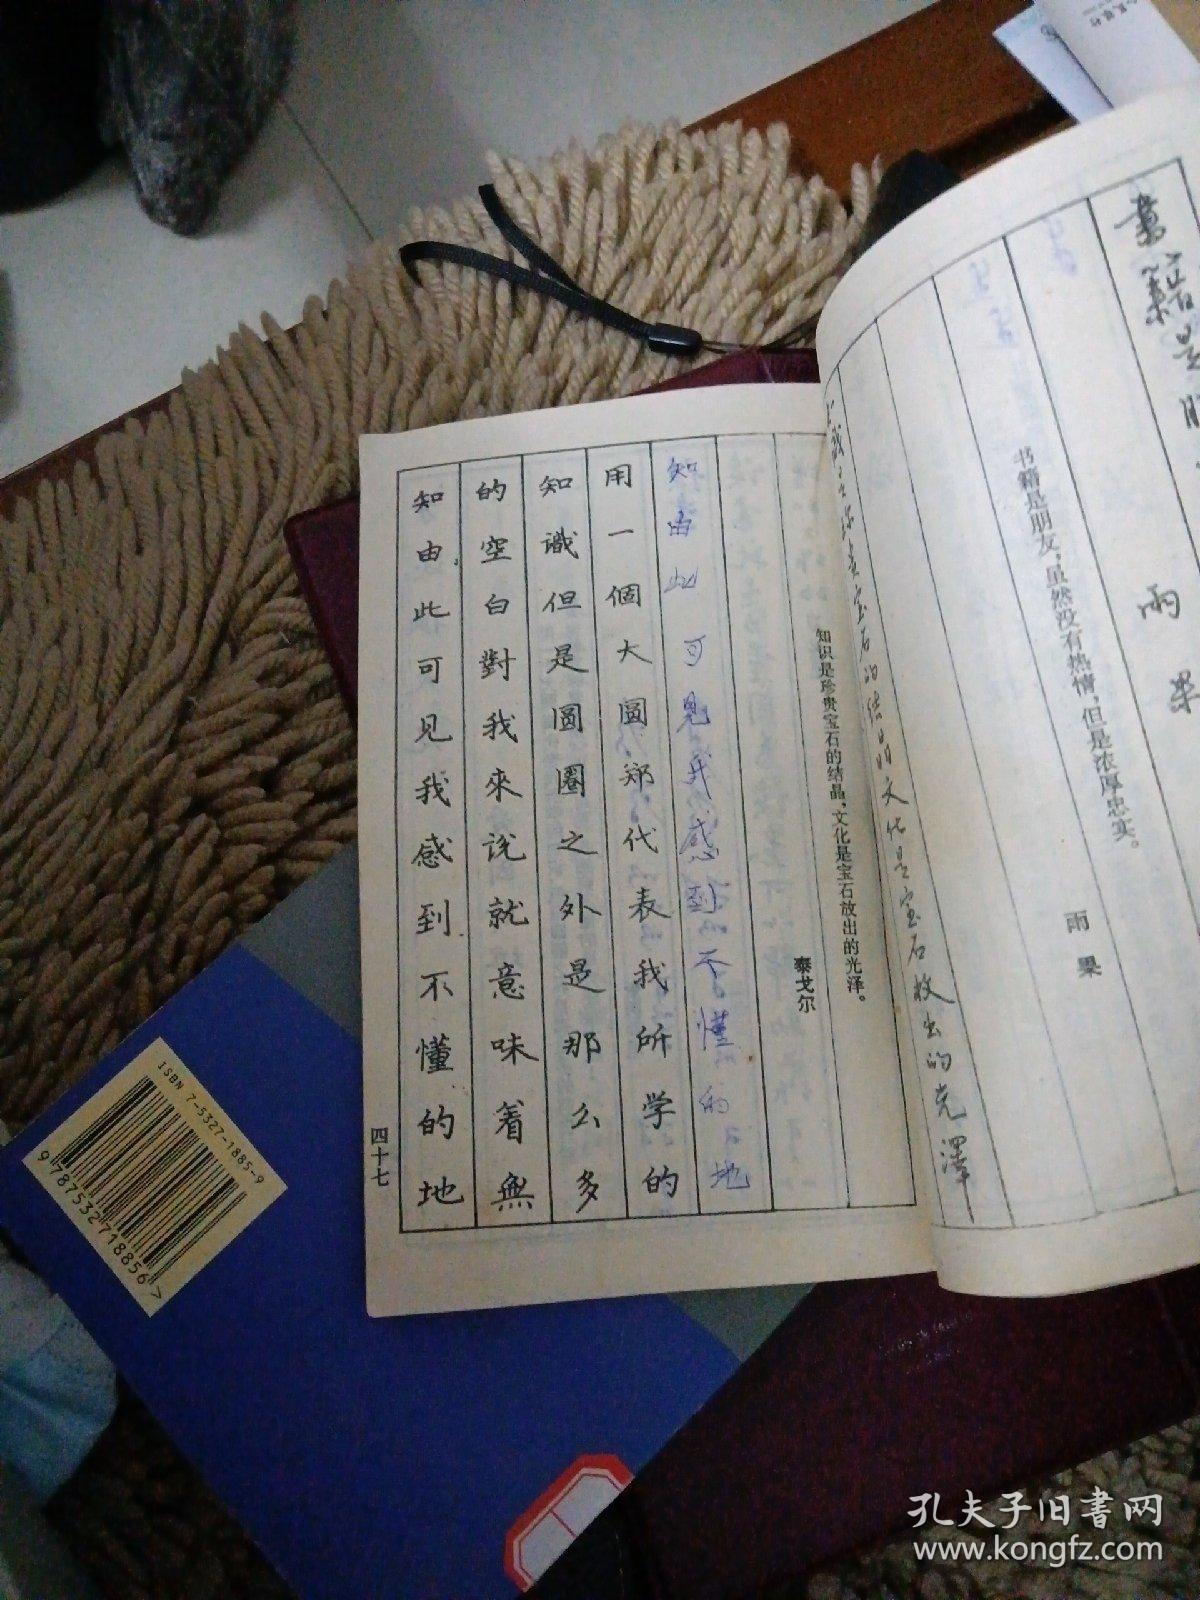 書籍是朋
雨果
书籍是朋友，虽然没有热情，但是浓厚忠实。
雨果
珍貴宝石的结晶文化是宝石放出的光澤
知识是珍贵宝石的结晶，文化是宝石放出的光泽。
泰戈尔
知由此可見我感到不懂的地
用一個大圓郑代表我所学的
知識但是圓圈之外是那么多
的空白對我來説就意味着無
知由此可见我感到不懂的地
四十七
ISBN 7-5327-1885-9
9 787532 718856 >
孔夫子旧書网
www.kongfz.com